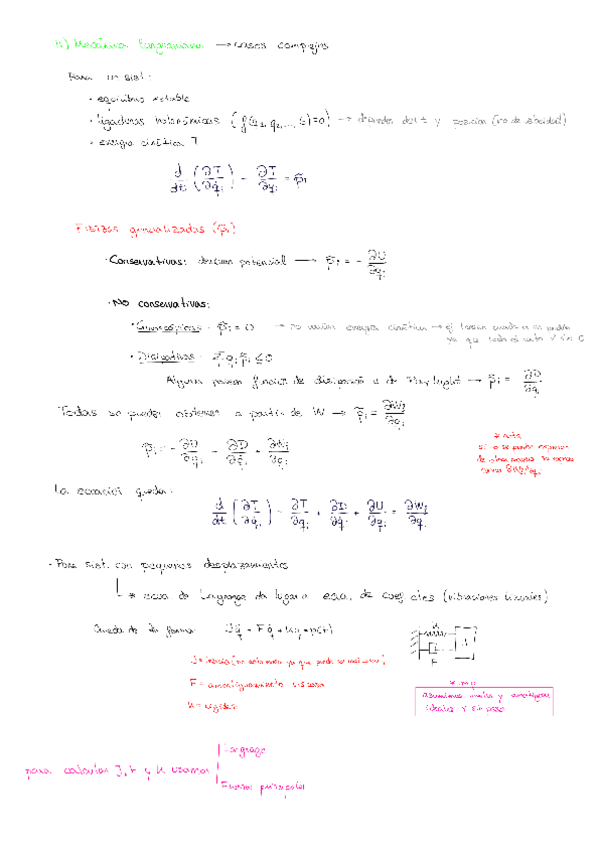 Mecánica Lagrangiana → casos complejos
Para un sist:
· equilibrio estable
· ligaduras holonómicas (f(q₁,q₂,...,t)=0) → dependen del t y posición (no de velocidad)
· energía cinética T
d/dt (∂T/∂q̇ᵢ) - ∂T/∂qᵢ = p̃ᵢ
Fuerzas generalizadas (p̃ᵢ)
· Conservativas: derivan potencial → p̃ᵢ = - ∂U/∂qᵢ
· No conservativas:
· Giroscópicas: p̃ᵢ = 0 → no varían energía cinética →
· Disipativas: Σ q̇ᵢ p̃ᵢ ≤ 0
Algunas función de disipación de Rayleigh → p̃ᵢ = ∂D/∂q̇ᵢ
Todas se pueden obtener a partir de W → p̃ᵢ = ∂Wᵢ/∂qᵢ
* nota
si no se puede expresar
de otra manera se
como
p̃ᵢ = - ∂U/∂qᵢ - ∂D/∂q̇ᵢ + ∂Wᵢ/∂qᵢ
La ecuación queda:
d/dt (∂T/∂q̇ᵢ) - ∂T/∂qᵢ + ∂D/∂q̇ᵢ + ∂U/∂qᵢ = ∂Wᵢ/∂qᵢ
· Para sist. con pequeños desplazamientos
* ecua. de Lagrange da lugar a ecua. de coef ctes (vibraciones lineales)
Quedando de forma Jq̈ + Fq̇ + Kq = p(t)
K
J
F
J = inercia (no solo masa ya que puede ser)
F = amortiguamiento viscoso
K = rigidez
asumimos muelle y amortiguador
ideales y sin peso
para calcular J, F y K usamos
Lagrange
Fuerzas